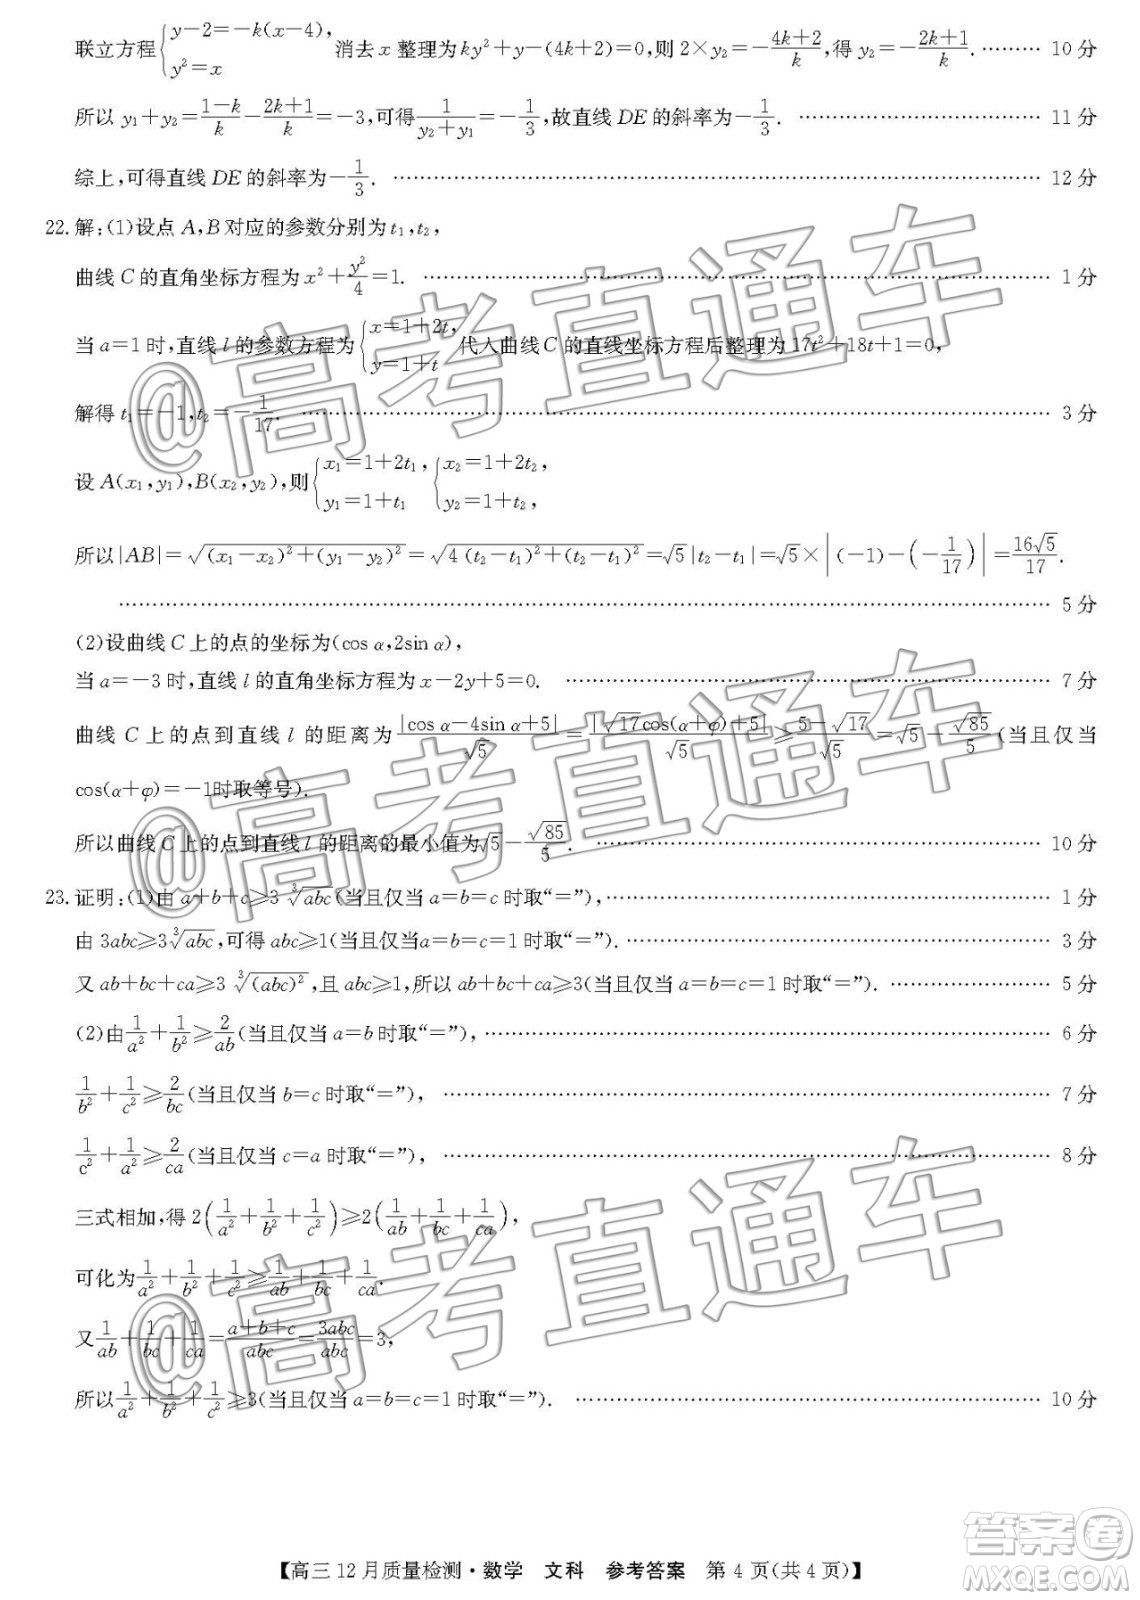 联立方程{y-2=-k(x-4), y²=x 消去 x 整理为 ky²+y-(4k+2)=0,则 2×y₂=-(4k+2)/k,得 y₂=-(2k+1)/k. ……… 10 分
所以 y₁+y₂=(1-k)/k-(2k+1)/k=-3,可得1/(y₂+y₁)=-1/3,故直线 DE 的斜率为-1/3. ……… 11 分
综上,可得直线 DE 的斜率为-1/3. ……… 12 分
22. 解:(1)设点 A,B 对应的参数分别为 t₁,t₂,
曲线 C 的直角坐标方程为 x²+y²/4=1. ……… 1 分
当 a=1 时,直线 l 的参数方程为{x=1+2t, y=1+t 代入曲线 C 的直线坐标方程后整理为 17t²+18t+1=0,
解得 t₁=-1,t₂=-1/17. ……… 3 分
设 A(x₁,y₁),B(x₂,y₂),则{x₁=1+2t₁, y₁=1+t₁ {x₂=1+2t₂, y₂=1+t₂,
所以|AB|=√((x₁-x₂)²+(y₁-y₂)²)=√(4(t₂-t₁)²+(t₂-t₁)²)=√5|t₂-t₁|=√5×|(-1)-(-1/17)|=16√5/17.
……… 5 分
(2)设曲线 C 上的点的坐标为(cos α,2sin α),
当 a=-3 时,直线 l 的直角坐标方程为 x-2y+5=0. ……… 7 分
曲线 C 上的点到直线 l 的距离为|cos α-4sin α+5|/√5=|√17cos(α+φ)+5|/√5≥(5-√17)/√5=√5-√85/5(当且仅当
cos(α+φ)=-1时取等号).
所以曲线 C 上的点到直线 l 的距离的最小值为√5-√85/5. ……… 10 分
23. 证明:(1)由 a+b+c≥3∛(abc)(当且仅当 a=b=c 时取“=”), ……… 1 分
由 3abc≥3∛(abc),可得 abc≥1(当且仅当a=b=c=1 时取“=”). ……… 3 分
又 ab+bc+ca≥3∛((abc)²),且 abc≥1,所以 ab+bc+ca≥3(当且仅当 a=b=c=1 时取“=”). ……… 5 分
(2)由1/a²+1/b²≥2/ab(当且仅当 a=b 时取“=”), ……… 6 分
1/b²+1/c²≥2/bc(当且仅当 b=c 时取“=”), ……… 7 分
1/c²+1/a²≥2/ca(当且仅当 c=a 时取“=”), ……… 8 分
三式相加,得 2(1/a²+1/b²+1/c²)≥2(1/ab+1/bc+1/ca),
可化为1/a²+1/b²+1/c²≥1/ab+1/bc+1/ca.
又1/ab+1/bc+1/ca=(a+b+c)/abc=3abc/abc=3,
所以1/a²+1/b²+1/c²≥3(当且仅当 a=b=c=1 时取“=”). ……… 10 分
【高三 12 月质量检测·数学 文科 参考答案 第 4 页(共 4 页)】
@高考直通车
@高考直通车
@高考直通车
答案卷
MXQE.COM